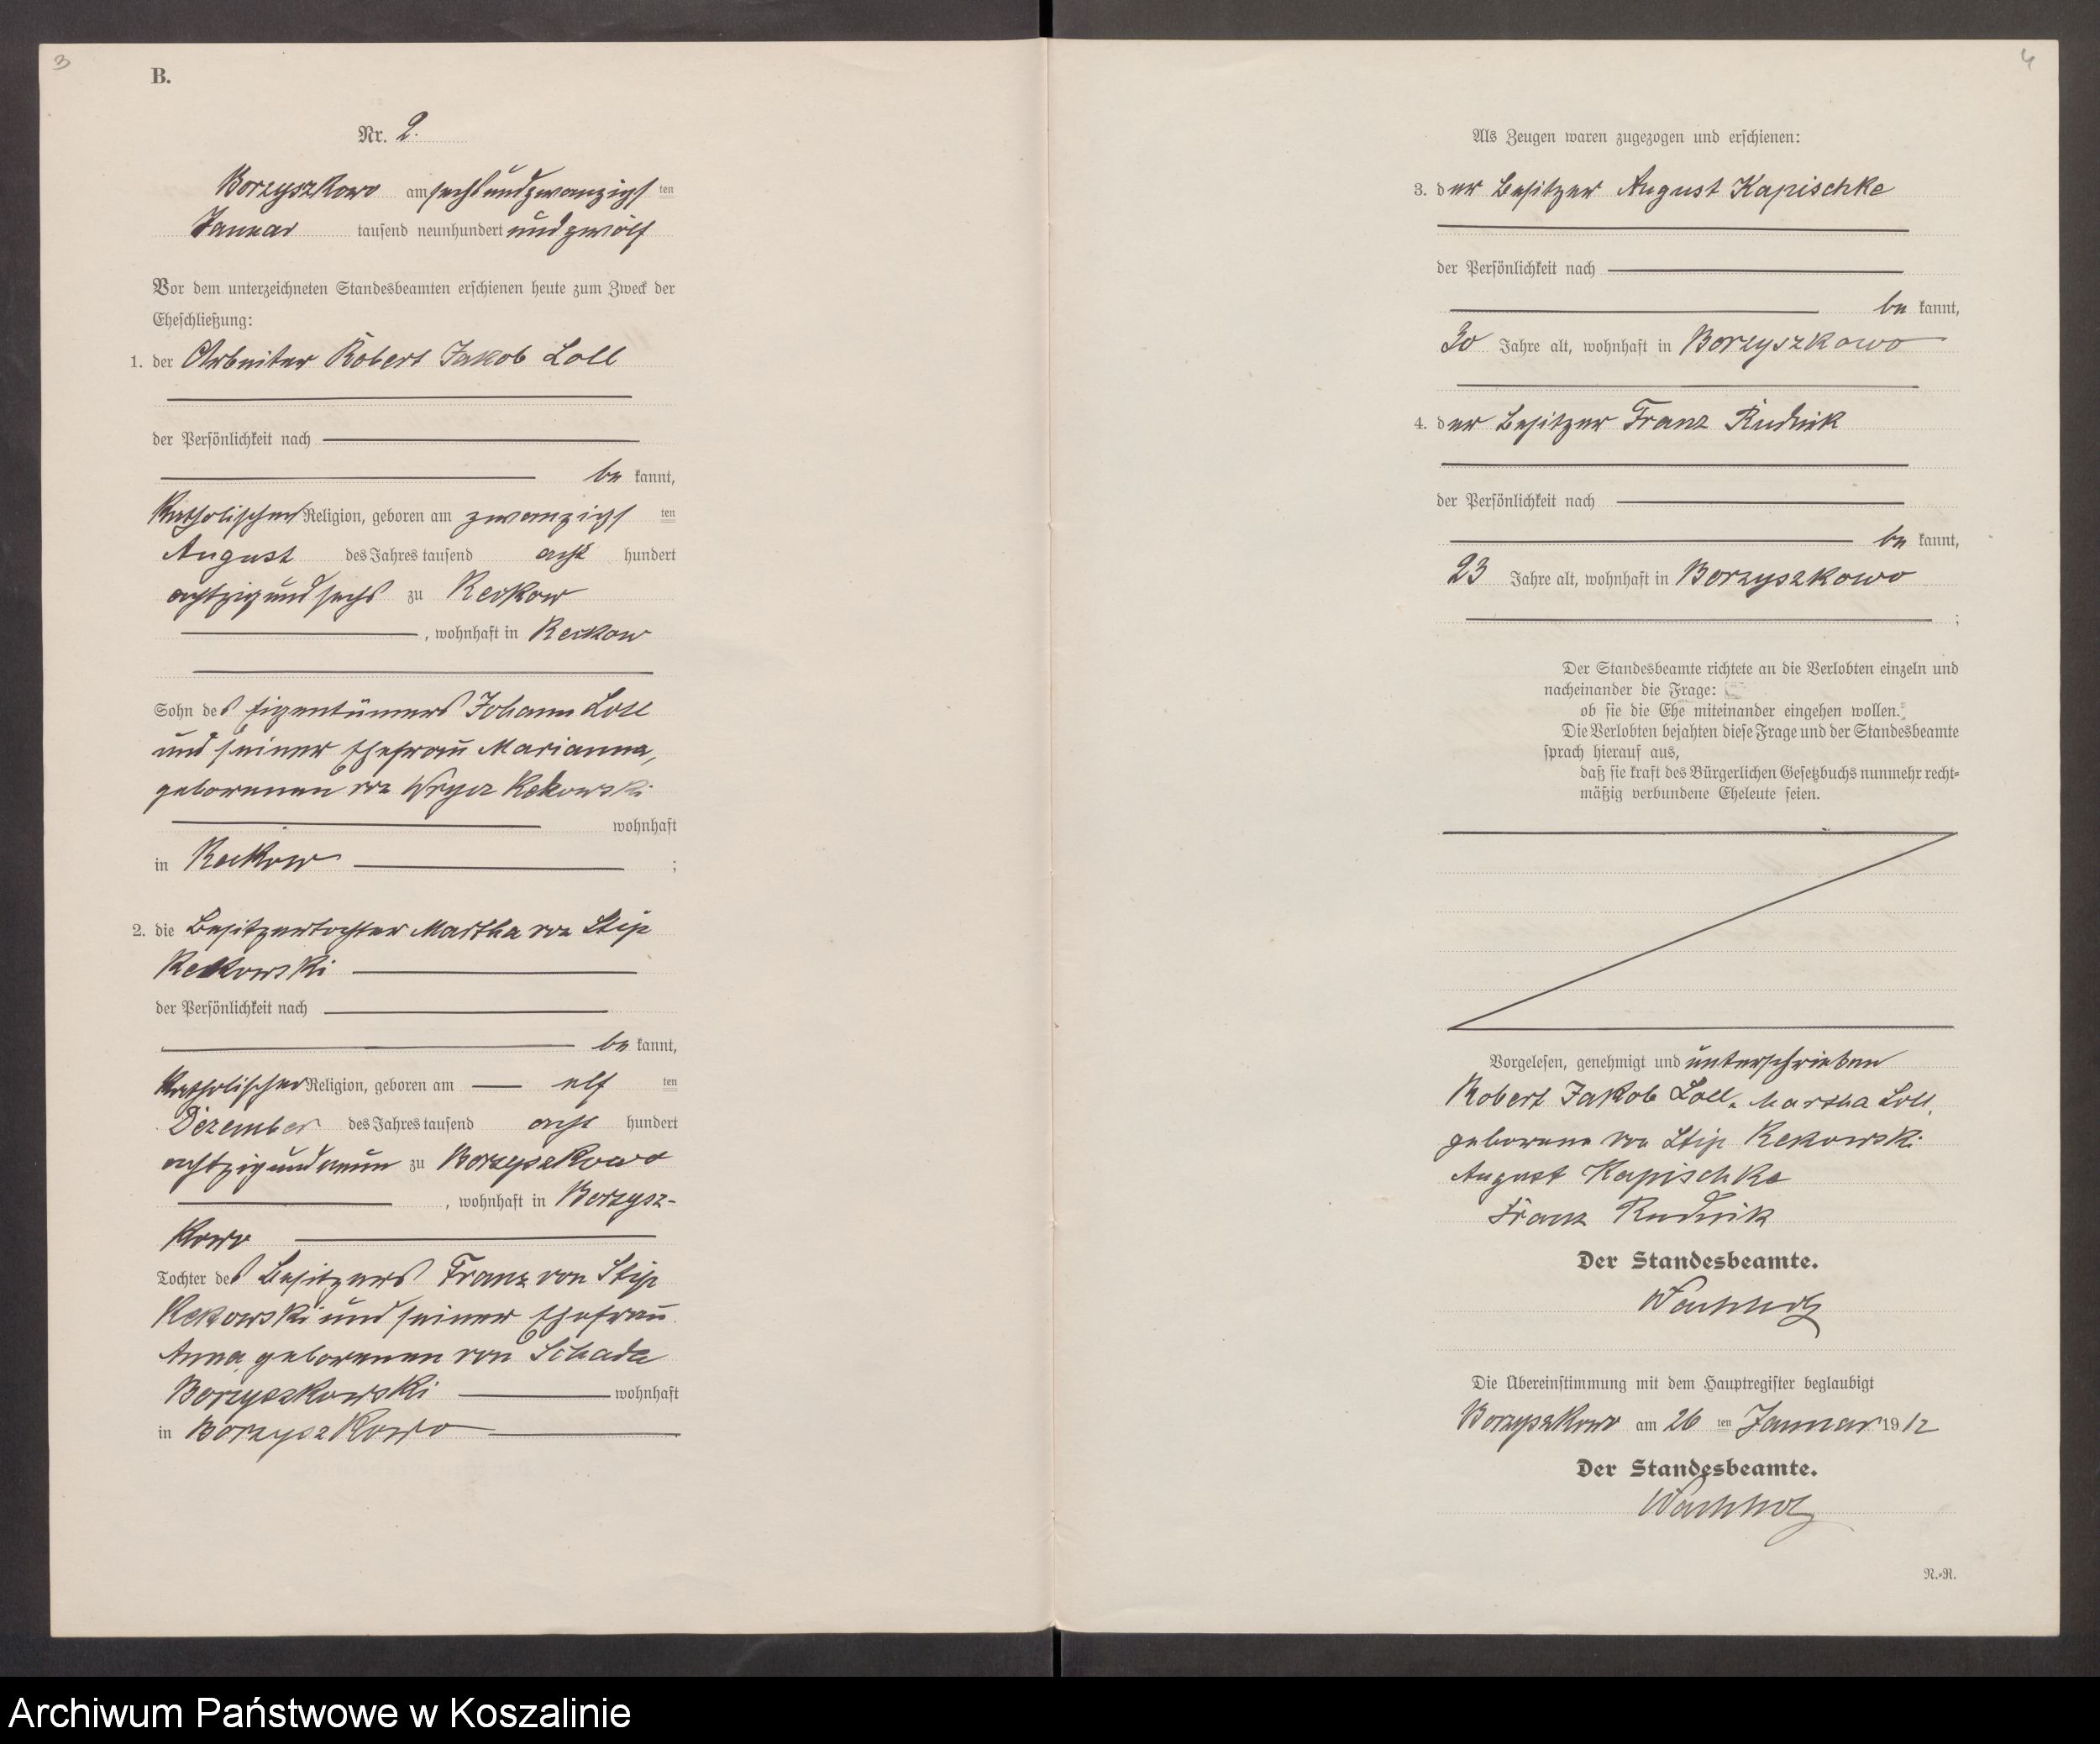 3
B.
Nr. 2.
Borzyszkowo am sechsundzwanzigsten
Januar tausend neunhundert und zwölf
Vor dem unterzeichneten Standesbeamten erschienen heute zum Zweck der
Eheschließung:
1. der Arbeiter Robert Jakob Loll
der Persönlichkeit nach
be kannt,
katholischer Religion, geboren am zwanzigsten
August des Jahres tausend acht hundert
achtzig und sechs zu Reckow
, wohnhaft in Reckow
Sohn des Eigentümers Johann Loll
und seiner Ehefrau Marianna,
geborenen von Wrycz Rekowski
wohnhaft
in Reckow ;
2. die Besitzertochter Martha von Stip
Rekowski
der Persönlichkeit nach
be kannt,
katholischer Religion, geboren am elf ten
Dezember des Jahres tausend acht hundert
achtzig und neun zu Borzyszkowo
, wohnhaft in Borzysz-
kowo
Tochter des Besitzers Franz von Stip
Rekowski und seiner Ehefrau
Anna, geborenen von Schada
Borzyszkowski wohnhaft
in Borzyszkowo
4
Als Zeugen waren zugezogen und erschienen:
3. der Besitzer August Kapischke
der Persönlichkeit nach
be kannt,
30 Jahre alt, wohnhaft in Borzyszkowo
4. der Besitzer Franz Rudnik
der Persönlichkeit nach
be kannt,
23 Jahre alt, wohnhaft in Borzyszkowo
;
Der Standesbeamte richtete an die Verlobten einzeln und
nacheinander die Frage:
ob sie die Ehe miteinander eingehen wollen.
Die Verlobten bejahten diese Frage und der Standesbeamte
sprach hierauf aus,
daß sie kraft des Bürgerlichen Gesetzbuchs nunmehr recht-
mäßig verbundene Eheleute seien.
Vorgelesen, genehmigt und unterschrieben
Robert Jakob Loll. Martha Loll,
geborene von Stip Rekowski
August Kapischke
Franz Rudnik
Der Standesbeamte.
Wachholz
Die Übereinstimmung mit dem Hauptregister beglaubigt
Borzyszkowo am 26 ten Januar 1912
Der Standesbeamte.
Wachholz
N.-R.
Archiwum Państwowe w Koszalinie